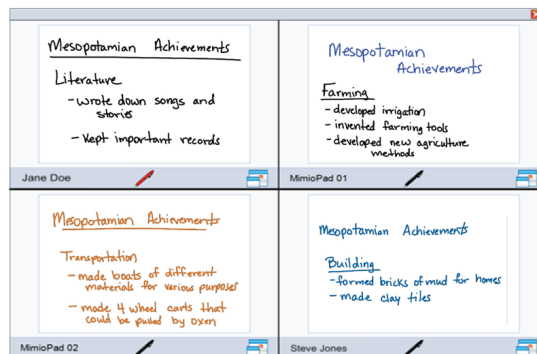 Mesopotamian Achievements
Literature
- wrote down songs and
stories
- Kept important records
Jane Doe
Mesopotamian
Achievements
Farming
- developed irrigation
- invented farming tools
- developed new agriculture
methods
MimioPad 01
Mesopotamian Achievements
Transportation
- made boats of different
materials for various purposes
- made 4 wheel carts that
could be pulled by oxen
MimioPad 02
Mesopotamian Achievements
Building
- formed bricks of mud for homes
- made clay tiles
Steve Jones